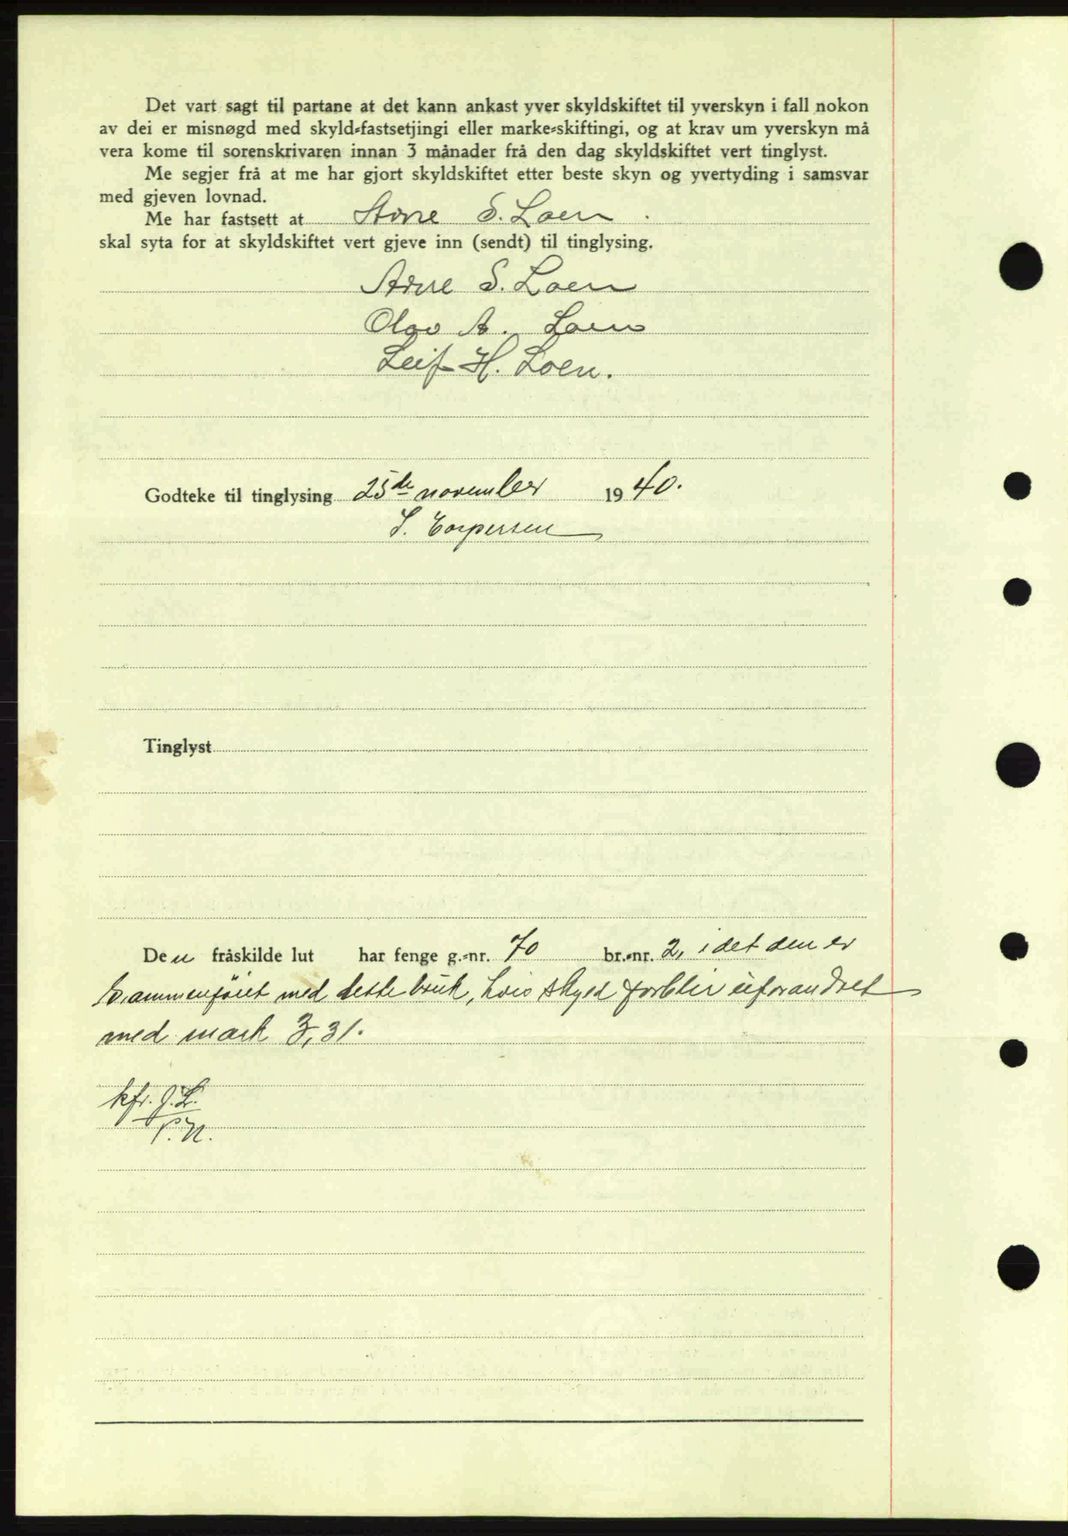 Det vart sagt til partane at det kann ankast yver skyldskiftet til yverskyn i fall nokon
av dei er misnøgd med skyld-fastsetjingi eller marke-skiftingi, og at krav um yverskyn må
vera kome til sorenskrivaren innan 3 månader frå den dag skyldskiftet vert tinglyst.
Me segjer frå at me har gjort skyldskiftet etter beste skyn og yvertyding i samsvar
med gjeven lovnad.
Me har fastsett at Arne S. Loen.
skal syta for at skyldskiftet vert gjeve inn (sendt) til tinglysing.
Arne S. Loen
Olav A. Loen
Leif H. Loen.
Godteke til tinglysing 25de november 1940.
Tinglyst
Den fråskilde lut har fenge g.-nr. 70 br.-nr. 2, idet den er
sammenføiet med dette bruk, hvis skyld forblir uforandret
med mark 3,31.
kfr. J.L.